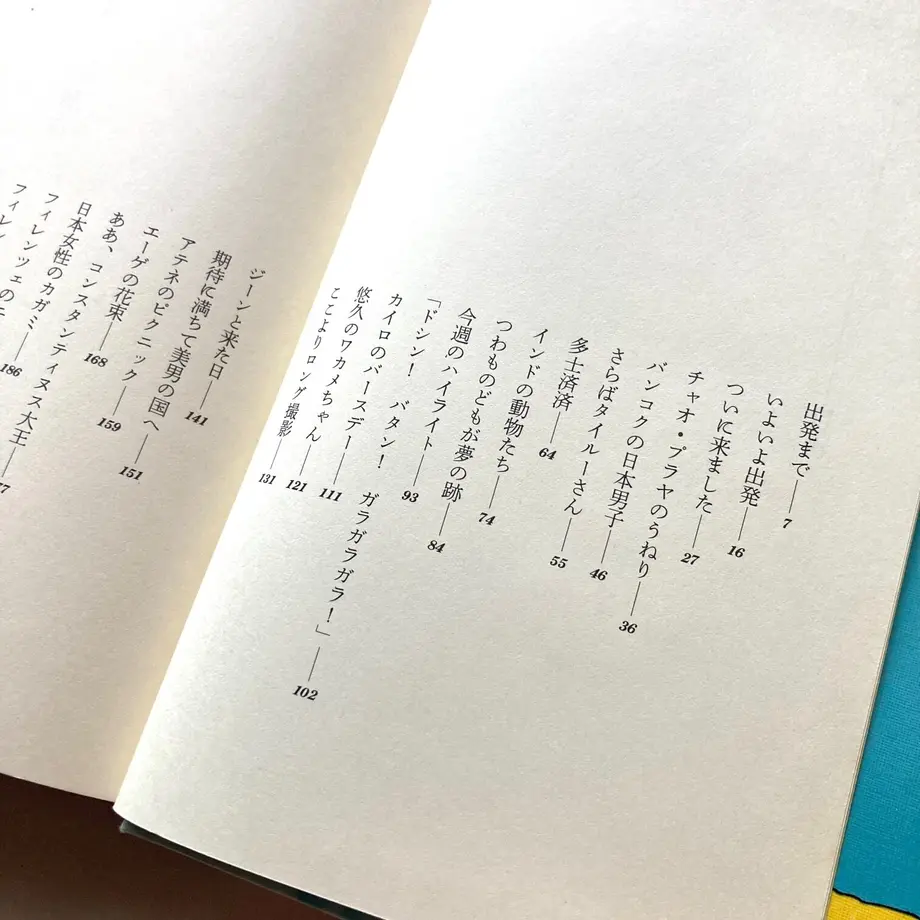 出発まで——7
いよいよ出発——16
ついに来ました——27
チャオ・プラヤのうねり——36
バンコクの日本男子——46
さらばタイルーさん——55
多士済済——64
インドの動物たち——74
つわものどもが夢の跡——84
今週のハイライト——93
「ドシン！　バタン！　ガラガラガラ！」——102
カイロのバースデー——111
悠久のワカメちゃん——121
ここよりロング撮影——131
ジーンと来た日——141
期待に満ちて美男の国へ——151
アテネのピクニック——159
エーゲの花束——168
ああ、コンスタンティヌス大王——77
日本女性のカガミ——186
フィレンツェの
フィレン